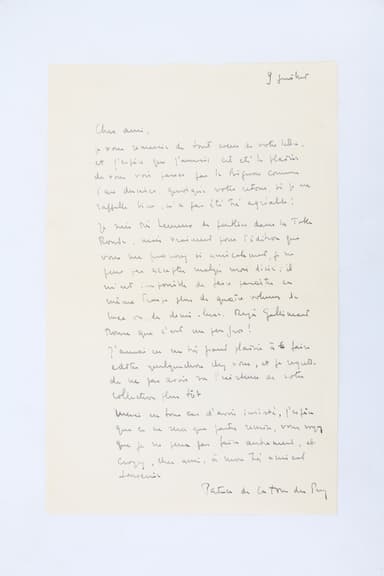 9 Juillet
Cher ami,
je vous remercie de tout cœur de votre lettre,
et j'espère que j'aurais cet été le plaisir
de vous voir passer par le Bignon comme
l'an dernier, quoique votre retour, si je me
rappelle bien, n'a pas été très agréable!
Je suis très heureux de paraître dans la Table
Ronde, mais vraiment pour l'édition que
vous me proposez si amicalement, je ne
peux pas accepter malgré mon désir; il
m'est impossible de faire paraître en
même temps plus de quatre volumes de
luxe ou de demi-luxe. Déjà Gallimard
trouve que c'est un peu gros!
J'aurais eu un très grand plaisir à faire
éditer quelque chose chez vous, et je regrette
de ne pas avoir su l'existence de votre
collection plus tôt
Merci en tous cas d'avoir insisté, j'espère
que ce ne sera que partie remise, vous voyez
que je ne peux pas faire autrement, et
croyez, cher ami, à mon très amical
souvenir
Patrice de La Tour du Pin